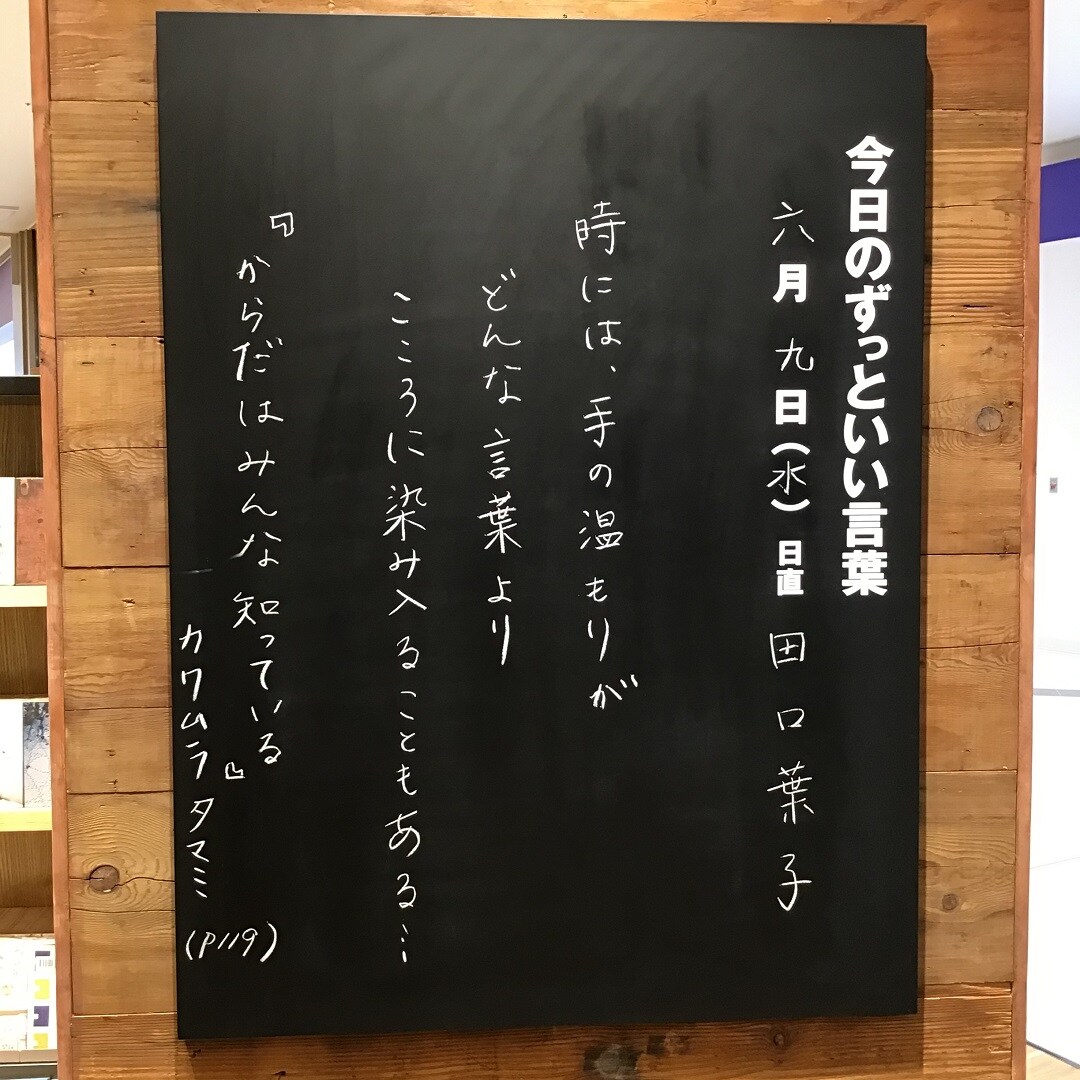 今日のずっといい言葉
六月九日(水)日直 田口葉子
時には、手の温もりが
どんな言葉より
こころに染み入ることもある…
『からだはみんな知っている』
カワムラタマミ
(P119)